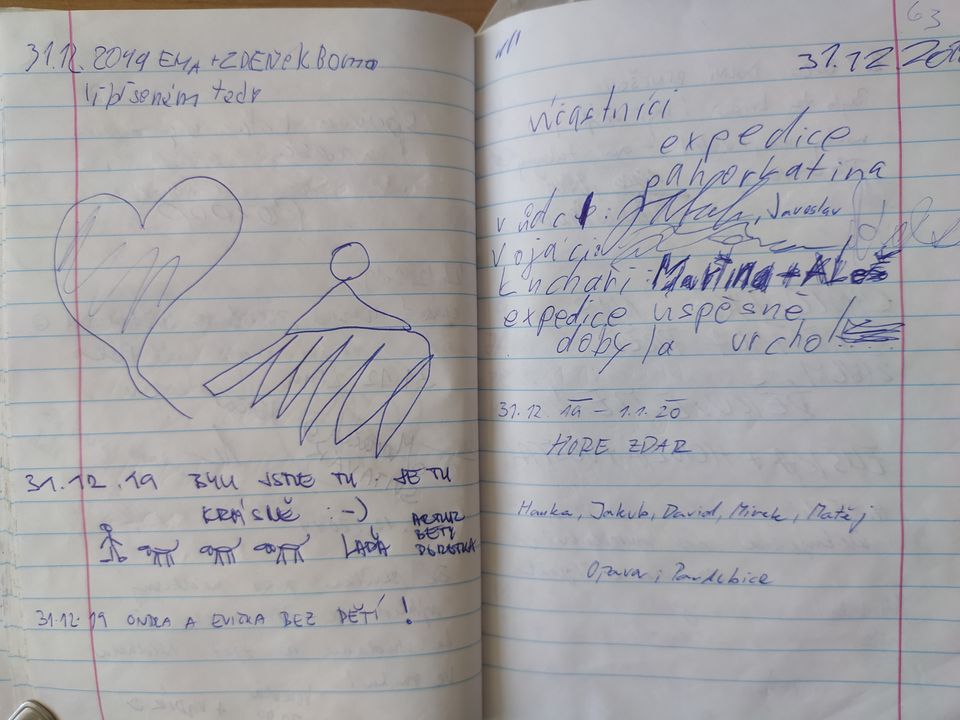 31.12.2019 EMA + ZDENĚK Boma
31.12.19 BYLI JSME TU. JE TU
KRÁSNĚ :-)
LAĎA
ARTUR
BETY
DOROTKA
31.12.19 ONDRA A EVIČKA BEZ DĚTÍ!
63
31.12 20
účastníci
expedice
pahorkatina
vůdce: Jaroslav
vojáci:
kuchaři: Martina + Aleš
expedice uspěsně
dobyla vrchol
31.12. 19 - 1.1. 20
HORE ZDAR
Hanka, Jakub, David, Mirek, Matěj
Opava, Pardubice